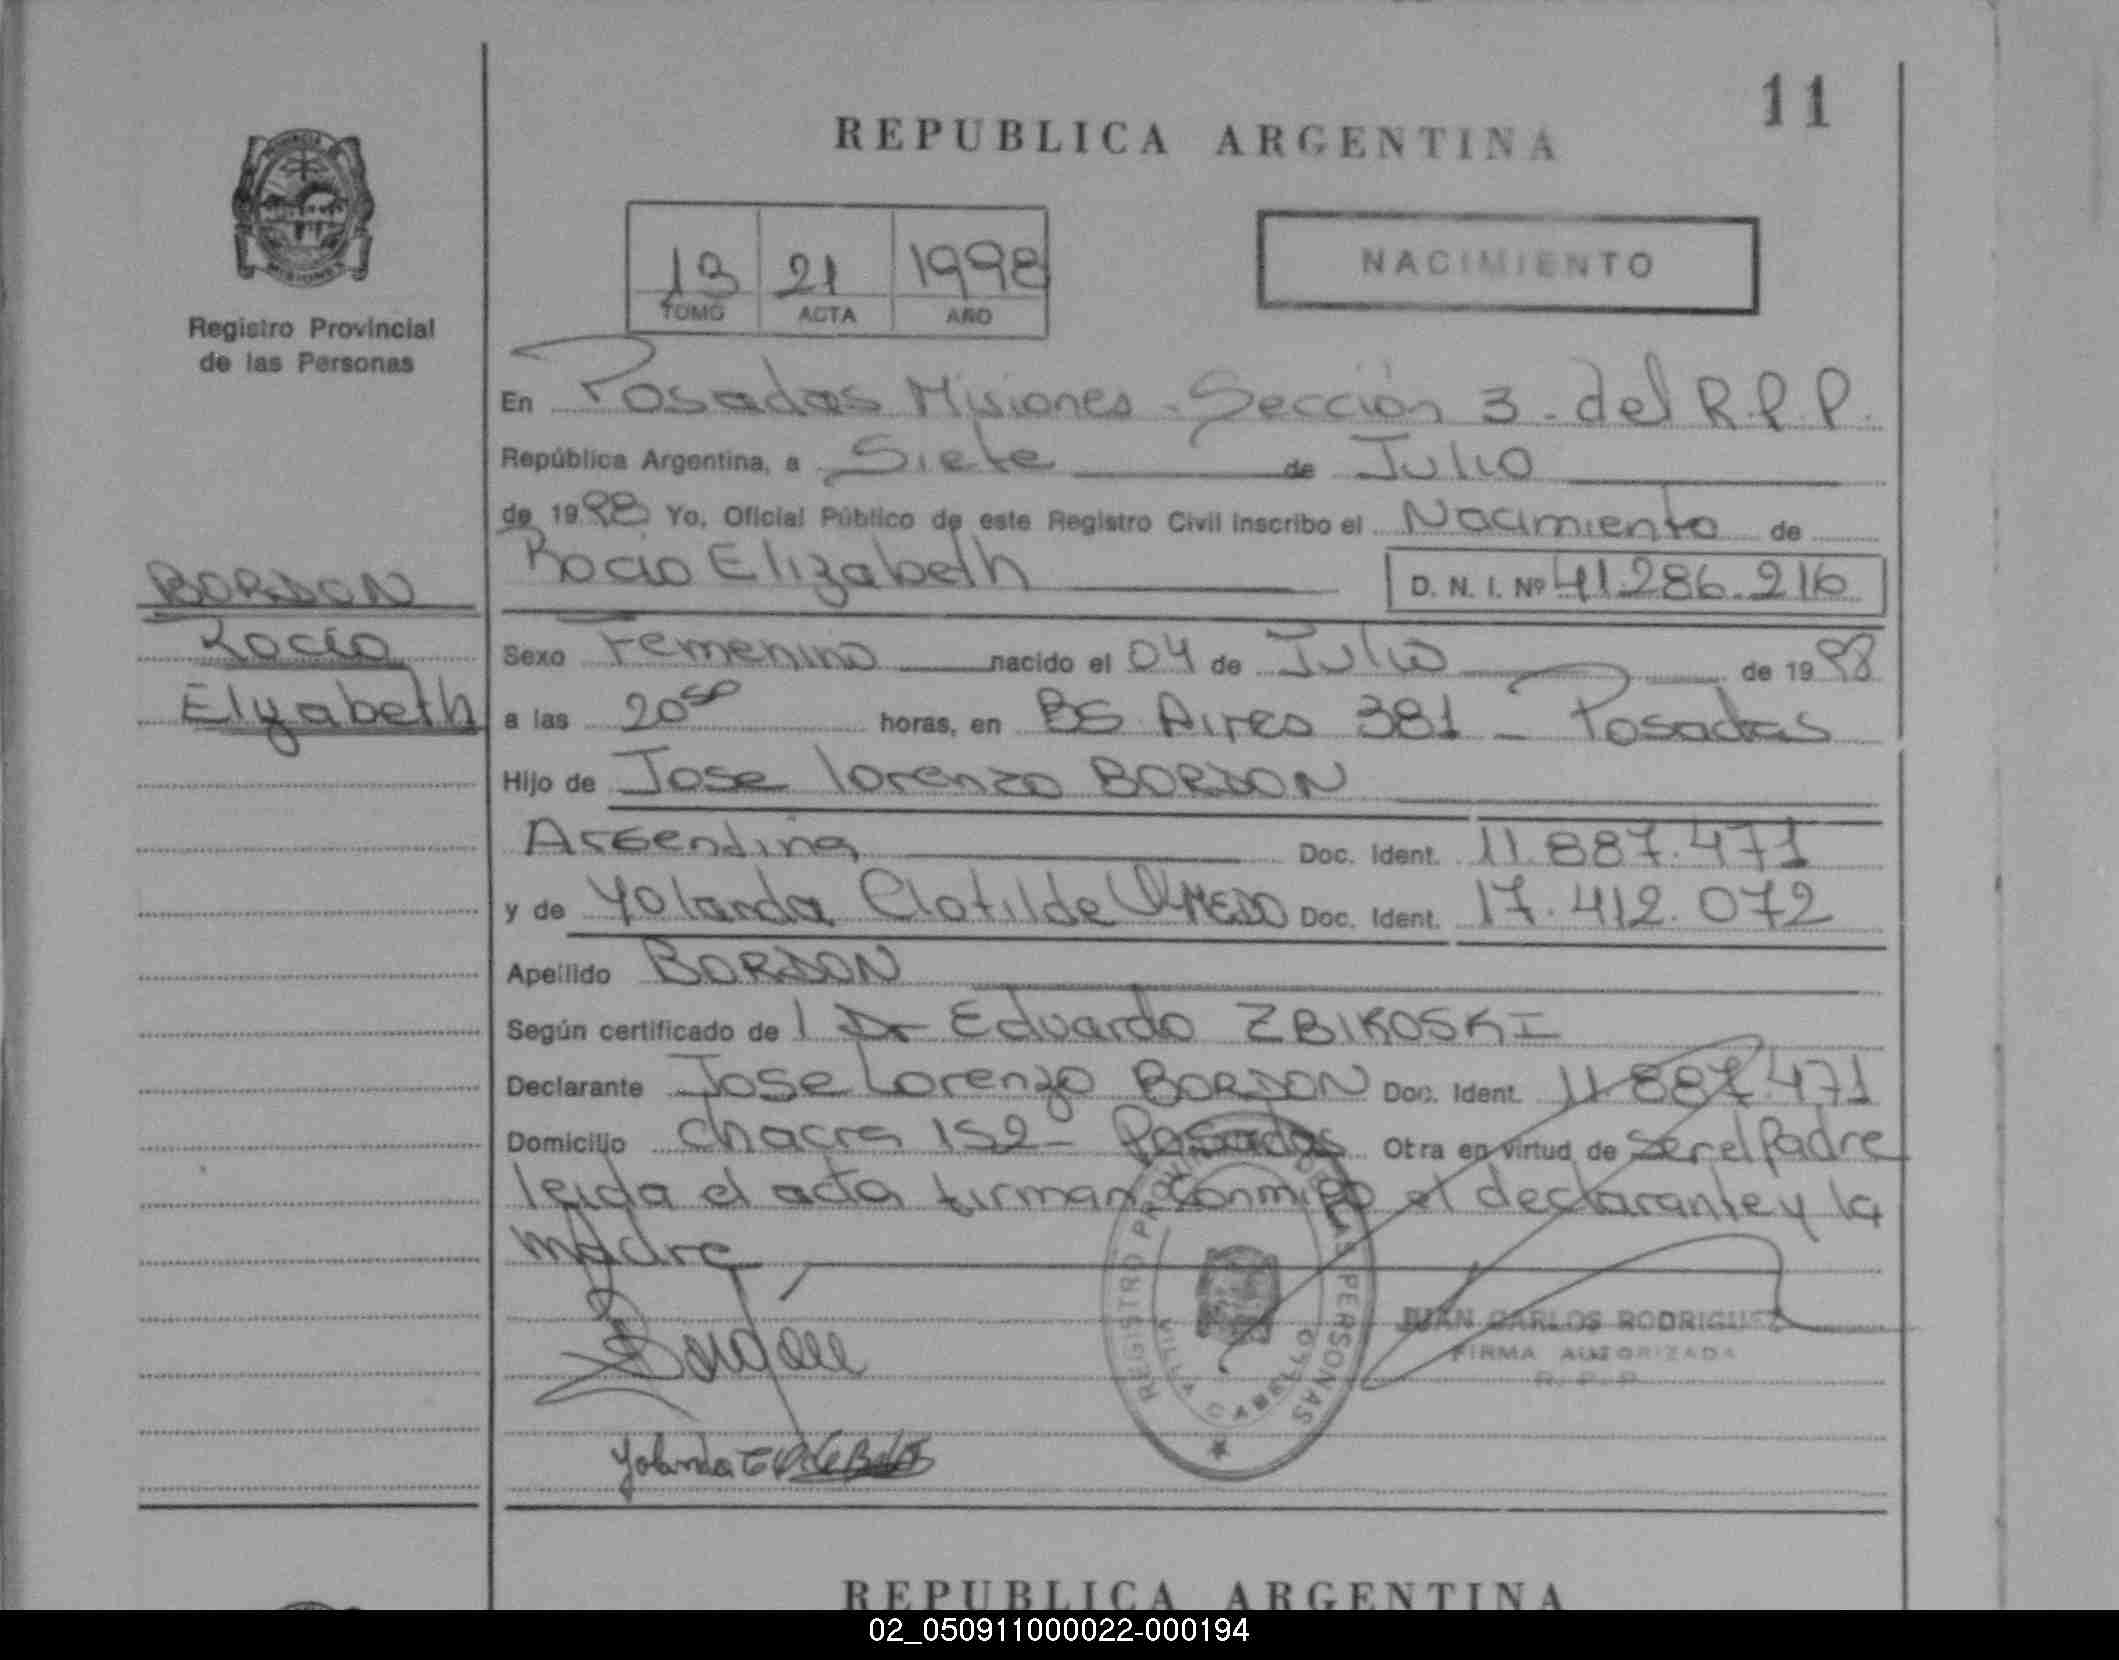 11
REPUBLICA ARGENTINA
13 21 1998
TOMO ACTA AÑO
NACIMIENTO
Registro Provincial
de las Personas
En Posadas Misiones - Sección 3 - del R.P.P.
República Argentina, a Siete de Julio
de 1998 Yo, Oficial Público de este Registro Civil inscribo el Nacimiento de
Rocio Elizabeth D. N. I. Nº 41.286.216
BORDON
Rocío
Elizabeth
Sexo Femenino nacido el 04 de Julio de 1998
a las 20 50 horas, en BS Aires 381 - Posadas
Hijo de Jose Lorenzo BORDON
Argentina Doc. Ident. 11.887.471
y de Yolanda Clotilde OLMEDO Doc. Ident. 17.412.072
Apellido BORDON
Según certificado de l Dr Eduardo ZBIKOSKI
Declarante Jose Lorenzo BORDON Doc. Ident. 11.887.471
Domicilio chacra 152 - Posadas Otra en virtud de ser el Padre
leida el acta firman conmigo el declarante y la
madre
REGISTRO PROVINCIAL DE LAS PERSONAS
VILLA CABELLO
JUAN CARLOS RODRIGUEZ
FIRMA AUTORIZADA
R. P. P.
Yolanda
REPUBLICA ARGENTINA
02_050911000022-000194